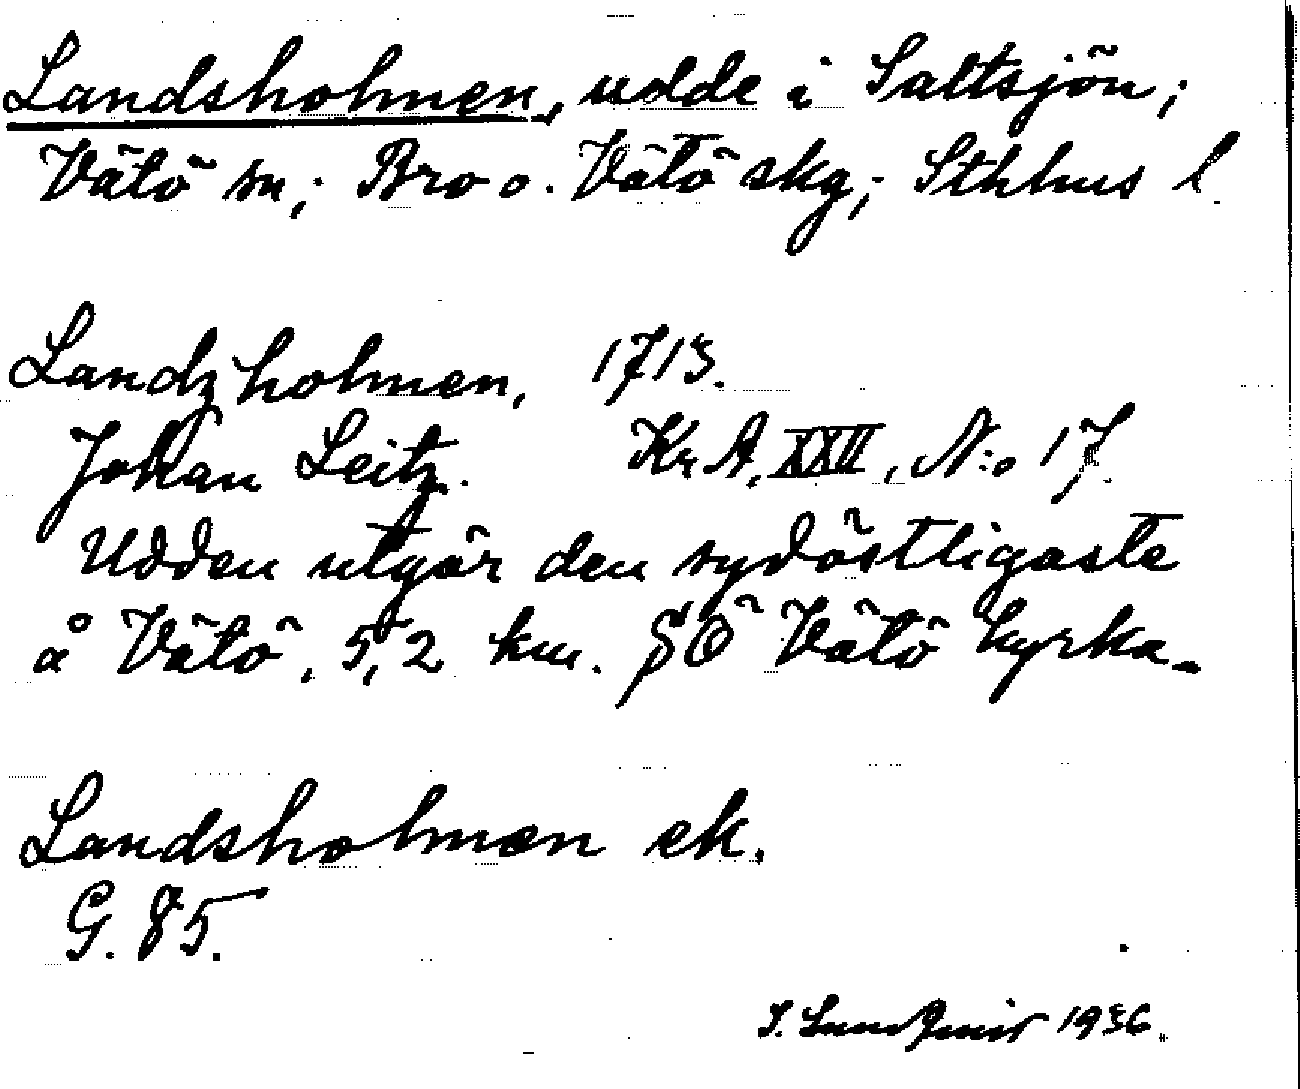 Landsholmen, udde i Saltsjön;
Vätö sn; Bro o. Vätö skg; Sthlms l.
Landzholmen, 1713.
Johan Leitz. Kr. A. XXII, N:o 17.
Udden utgör den sydöstligaste
å Vätö, 5,2 km. SÖ Vätö kyrka.
Landsholmen ek.
G. 85.
1936.